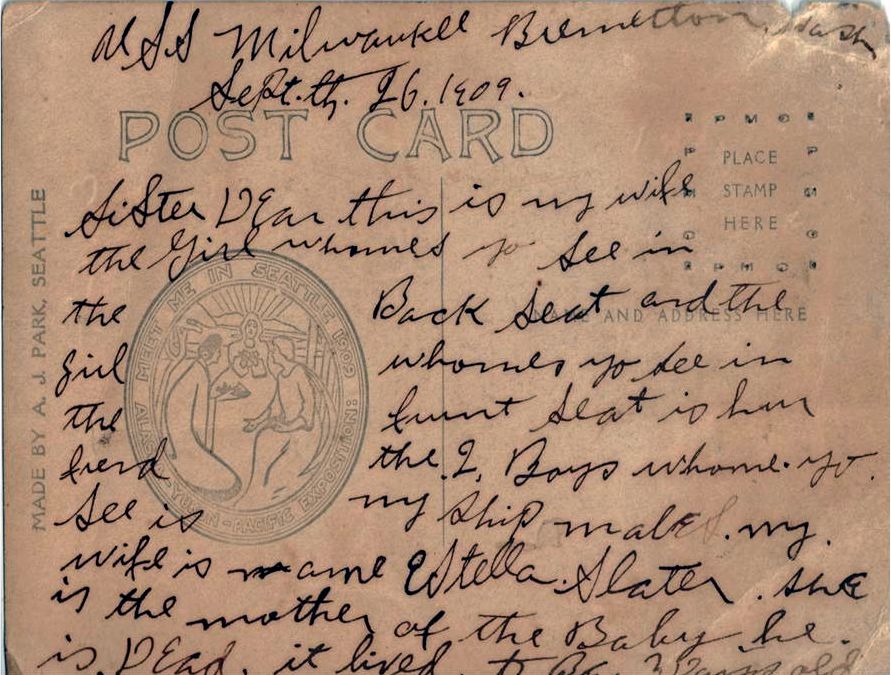 USS Milwaukee Bremetton Wash
Sept. th. 26. 1909.
POST CARD
PLACE
STAMP
HERE
NAME AND ADDRESS HERE
MADE BY A. J. PARK, SEATTLE
MEET ME IN SEATTLE 1909
ALASKA-YUKON-PACIFIC EXPOSITION:
SiSter DEar this is my wife
the Girl whomes yo See in
the Back Seat and the
girl whomes yo see in
the frunt Seat is hur
frend the 2. Boys whome. yo.
See is my Ship mates. my.
wife is name EStella. Slater. she
is the mother of the Baby he.
is. DEad. it lived. to Be. 3 years old